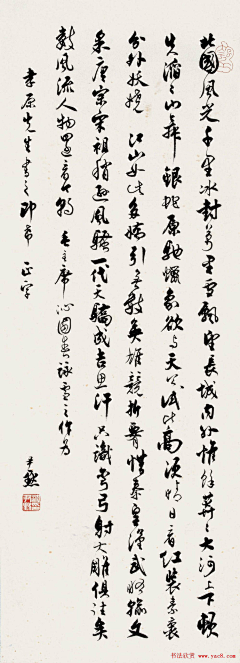 北國風光千里冰封萬里雪飄望長城内外惟餘莽〻大河上下頓
失滔〻山舞銀蛇原馳蠟象欲与天公試比高須晴日看紅裝素裹
分外妖嬈 江山如此多嬌引無數英雄競折腰惜秦皇漢武略輸文
采唐宗宋祖稍遜風騷一代天驕成吉思汗只識彎弓射大雕俱往矣
數風流人物還看今朝 毛主席沁園春詠雪之作為
聿原先生書之即希 正字
尹默
书法欣赏 yac8.com